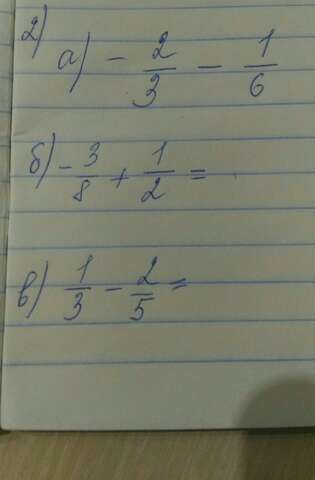 2)
а) - 2/3 - 1/6
б) - 3/8 + 1/2 =
в) 1/3 - 2/5 =